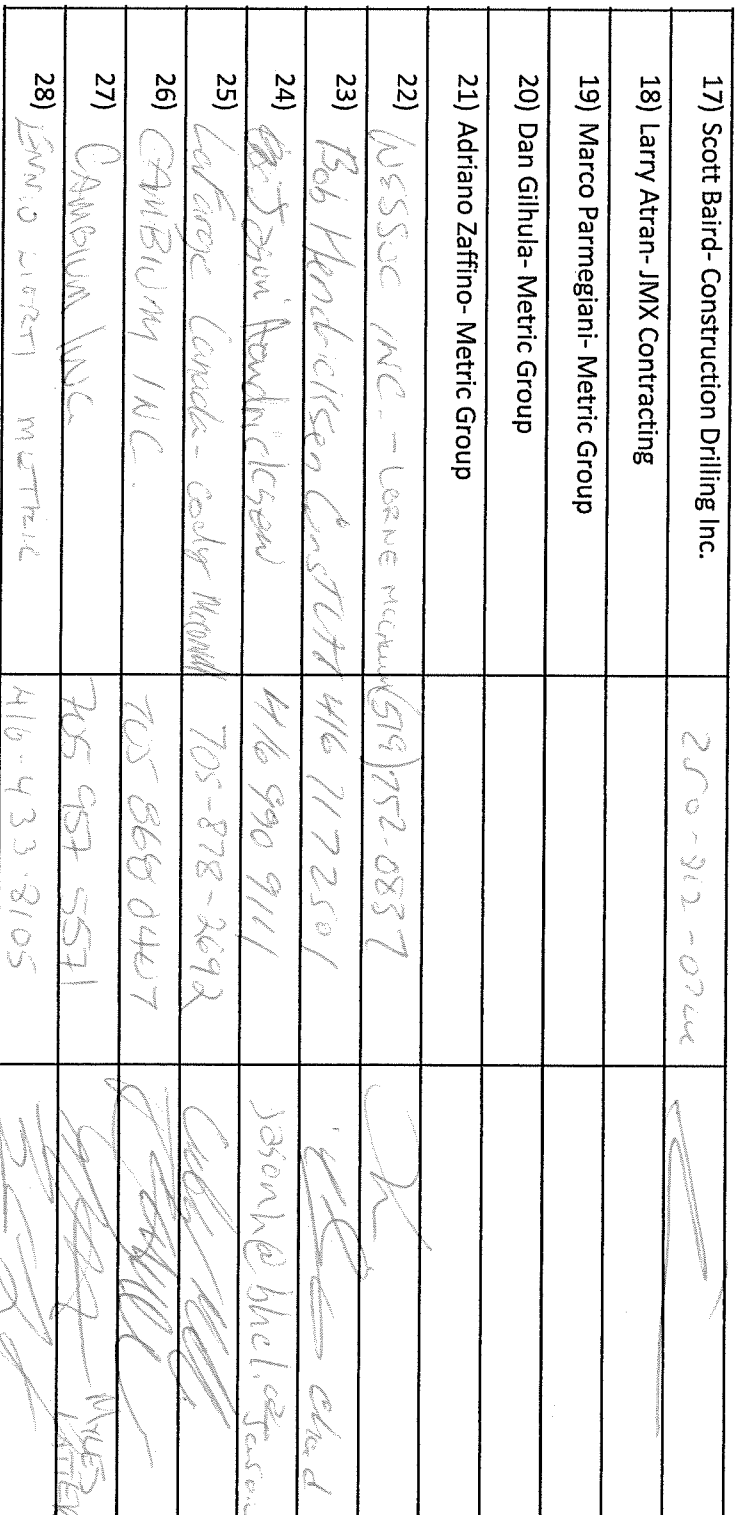 17) Scott Baird- Construction Drilling Inc. 250-912-07
18) Larry Atran- JMX Contracting
19) Marco Parmegiani- Metric Group
20) Dan Gilhula- Metric Group
21) Adriano Zaffino- Metric Group
22) WESSUC INC. - LORNE (519) 752-0837
23) Bob Hendricksen Const LTD 416 717 2501 Chad
24) Jason Hendricksen 416 990 9111 jasonh@bhcl.ca Jason
25) LaFarge Canada- Cody 705-878-2692
26) CAMBIUM INC. 705 868 0467
27) CAMBIUM INC. 705 957 5571 MYLES
28) ENNIO LIORTI METRIC 416-433-8105